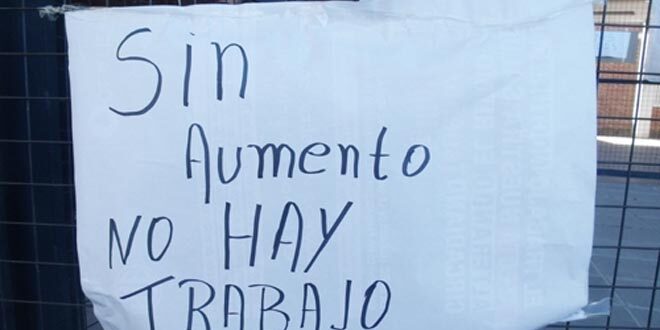 Sin
Aumento
NO HAY
TRABAJO